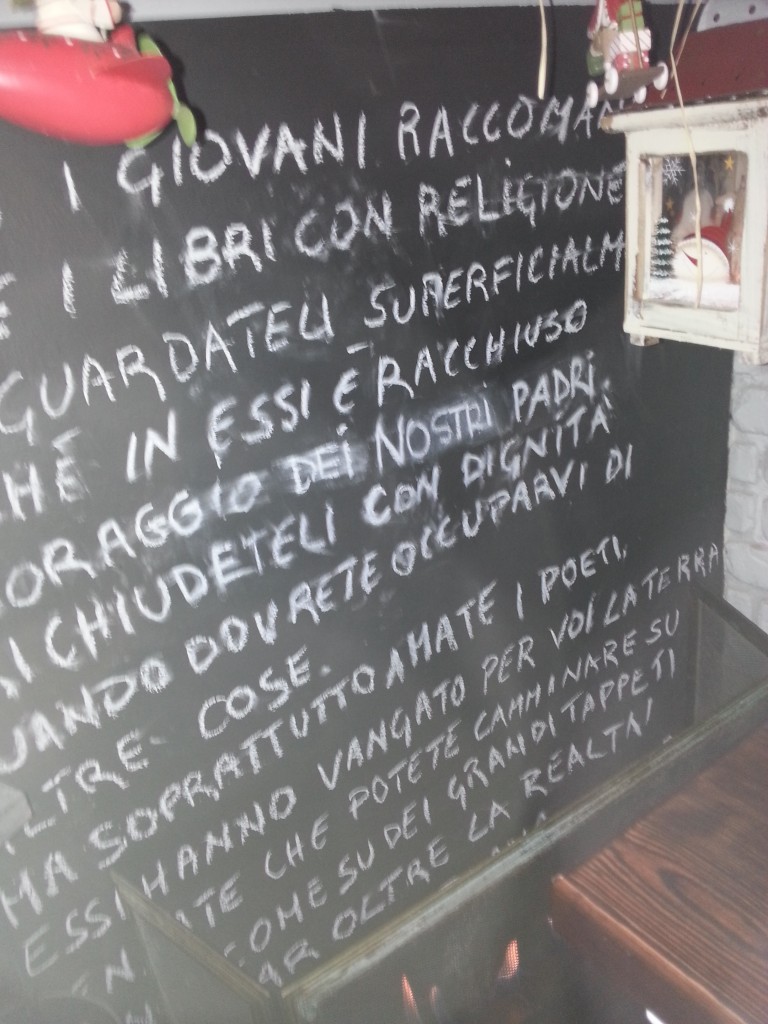 I GIOVANI RACCOMAN
E I LIBRI CON RELIGIONE
GUARDATELI SUPERFICIALM
HÉ IN ESSI É RACCHIUSO
ORAGGIO DEI NOSTRI PADRI.
I CHIUDETELI CON DIGNITÀ
UANDO DOVRETE OCCUPARVI DI
LTRE COSE.
MA SOPRATTUTTO AMATE I POETI,
ESSI HANNO VANGATO PER VOI LA TERRA
TE CHE POTETE CAMMINARE SU
COME SU DEI GRANDI TAPPETI
AR OLTRE LA REALTA'